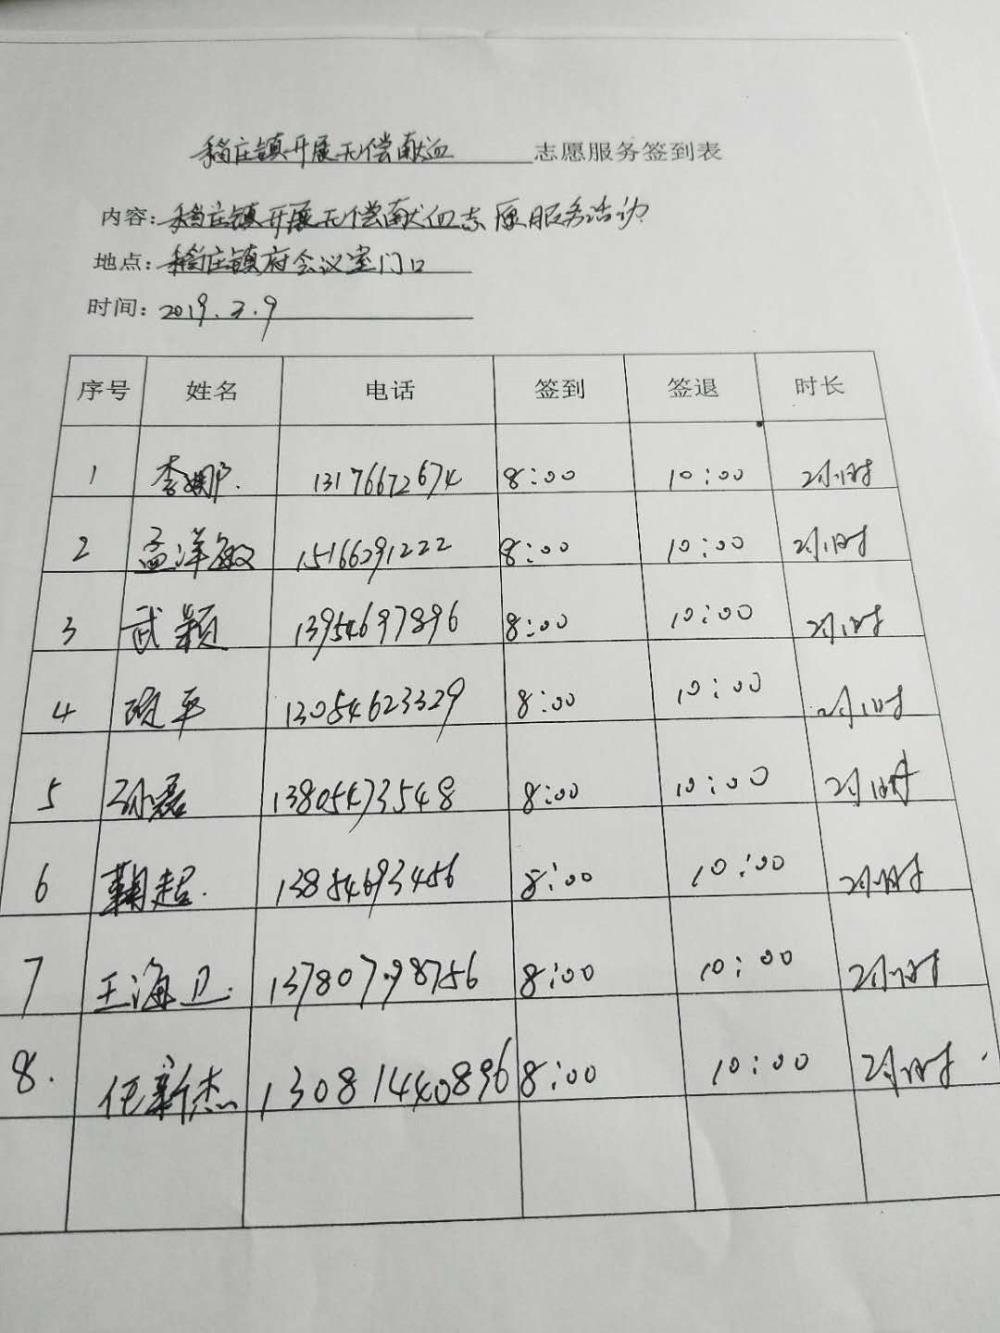 稻庄镇开展无偿献血 志愿服务签到表
内容：稻庄镇开展无偿献血志愿服务活动
地点：稻庄镇府会议室门口
时间：2019.3.9
序号 姓名 电话 签到 签退 时长
1 李娜. 13176672674 8:00 10:00 2小时
2 孟洋敏 15166391222 8:00 10:00 2小时
3 武颖 13954697896 8:00 10:00 2小时
4 平 13054623329 8:00 10:00 2小时
5 孙磊 13805473548 8:00 10:00 2小时
6 鞠超. 13854693456 8:00 10:00 2小时
7 王海卫. 13780798756 8:00 10:00 2小时
8. 任新杰 13081440896 8:00 10:00 2小时